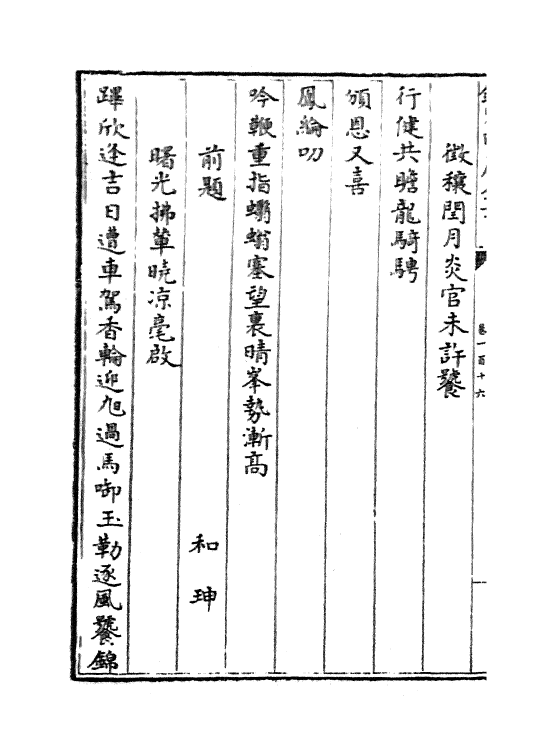 卷一百十六
徴穰閏月炎官未許饕
行健共瞻龍騎騁
頒恩又喜
鳳綸叨
吟鞭重指蠮螉塞望裏晴峯勢漸高
前題 和珅
曙光拂葦曉涼毫啟
蹕欣逢吉日遭車駕香輪迎旭過馬啣玉勒逐風饕錦